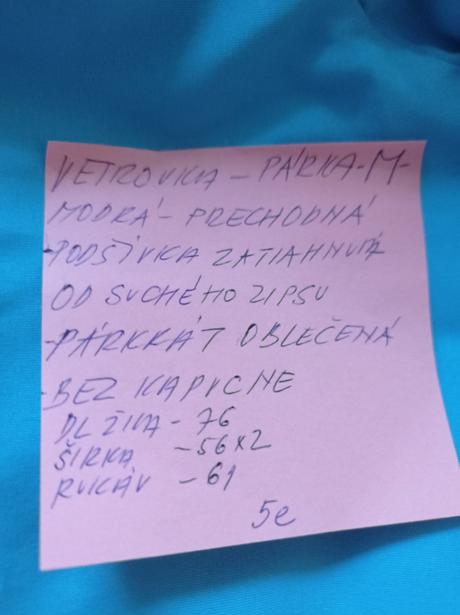 VETROVKA - PÁRKA-M-
MODRÁ - PRECHODNÁ
-PODŠÍVKA ZATIAHNUTÁ
OD SUCHÉHO ZIPSU
-PÁRKKÁT OBLEČENÁ
-BEZ KAPUCNE
DLŽIKA - 76
ŠÍRKA - 56x2
RUKÁV - 61
5e